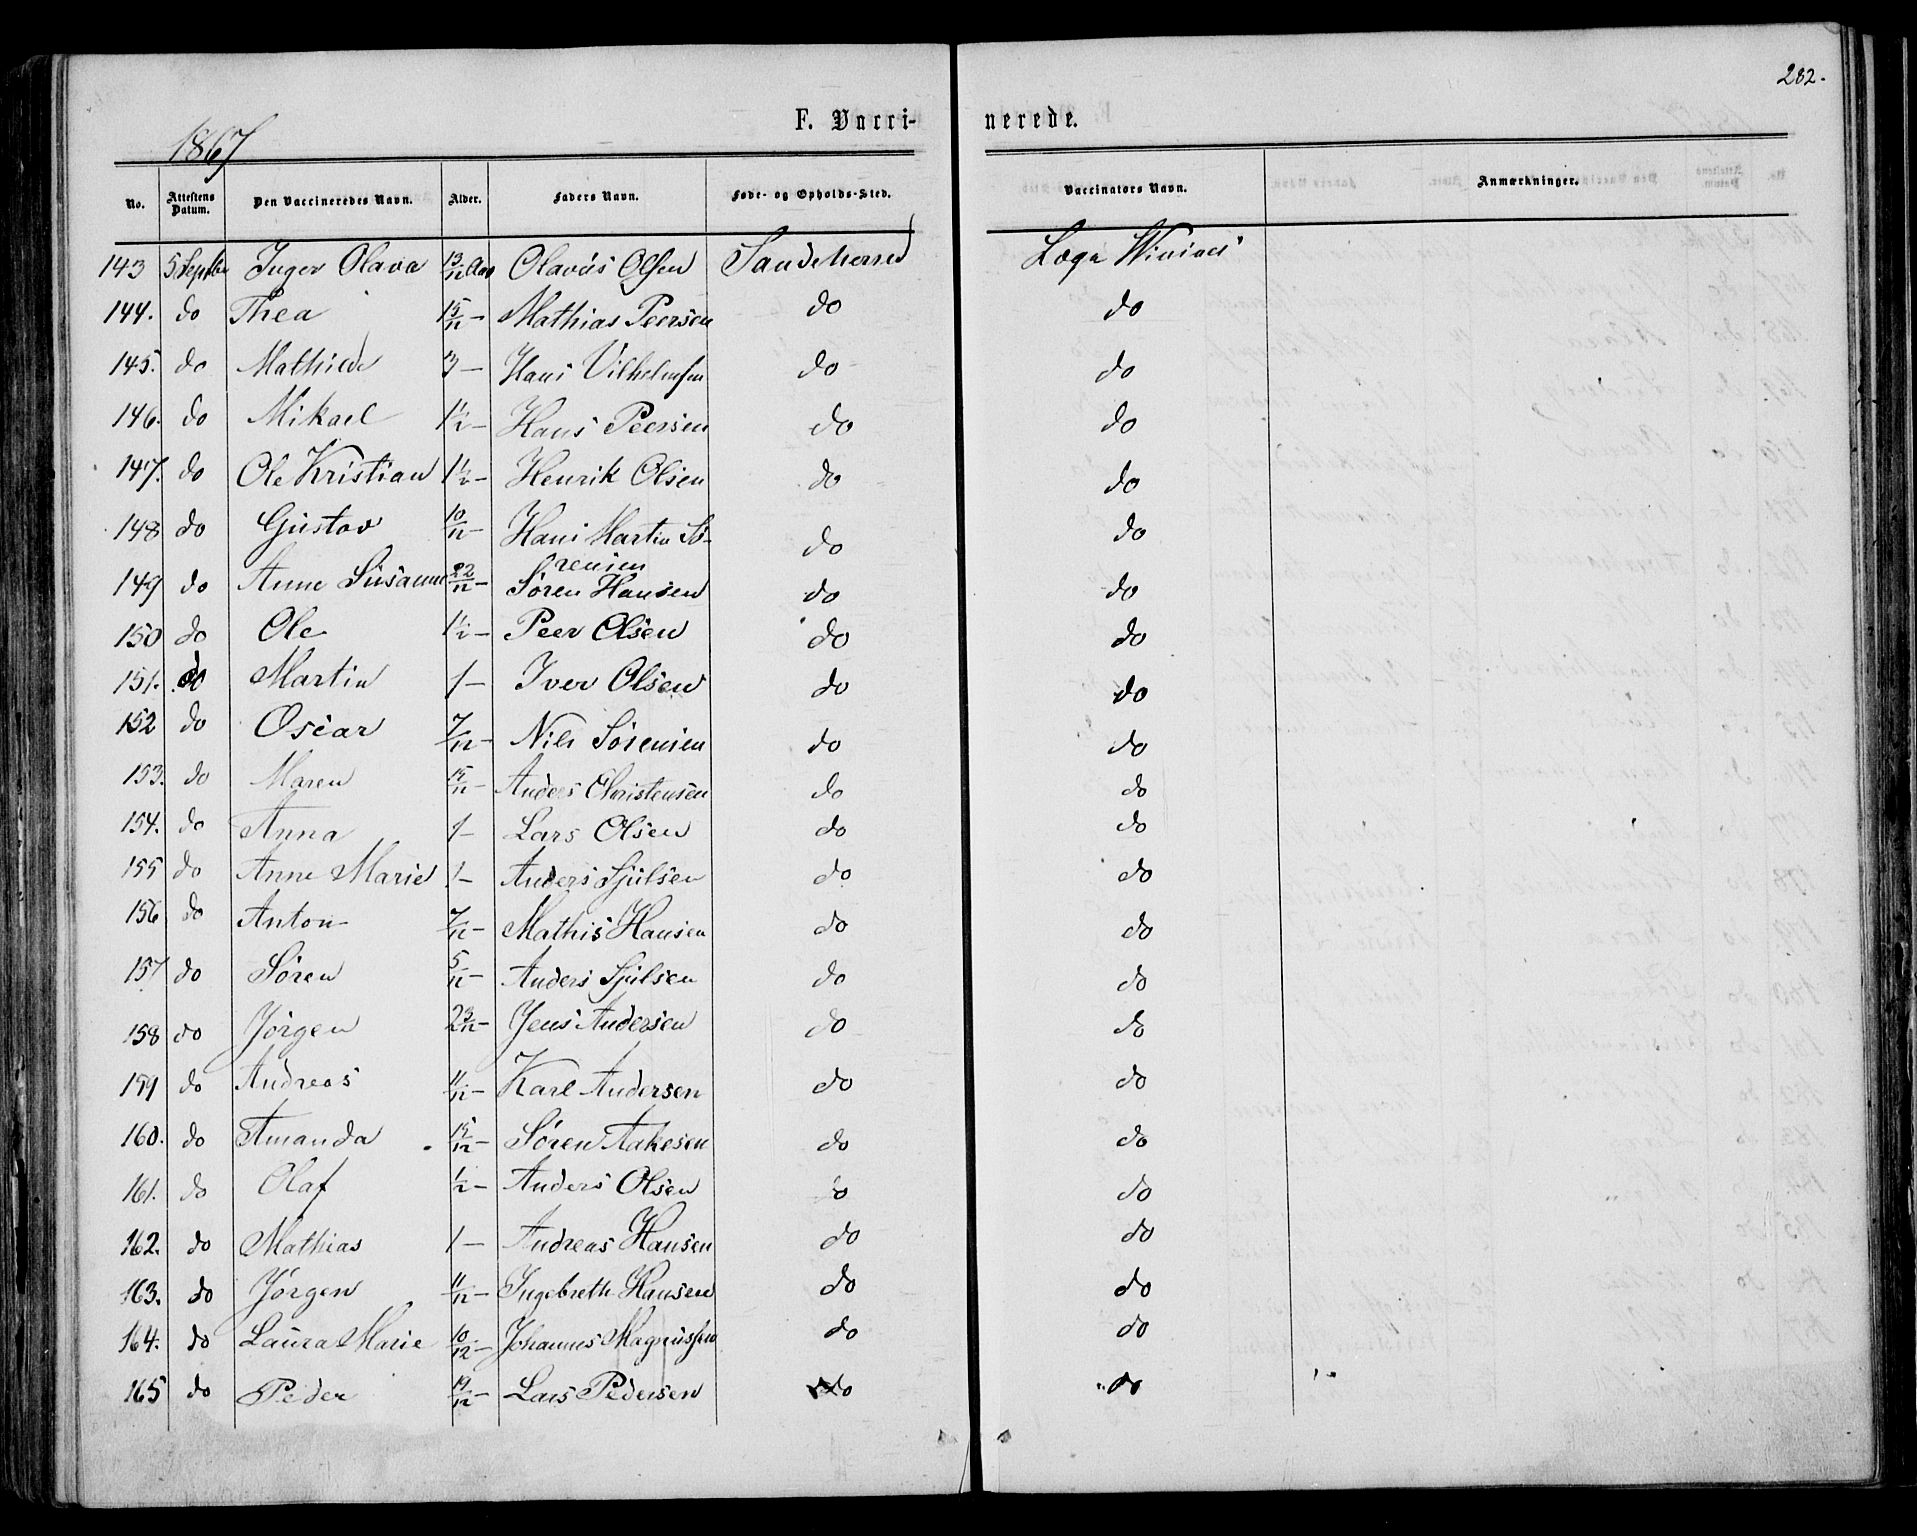 282.
1867
F. Vacci- nerede.
No. Attestens Datum. Den Vaccineredes Navn. Alder. Faders Navn. Føde- og Opholds-Sted. Vaccinators Navn. Anmærkninger.
143 5 Septbr Inger Olava 13/12 Aar Olavus Olsen Sandeherred Læge
144. do Thea 15/12 — Mathias Peersen do do
145. do Mathilde 3 — Hans Vilhelmsen do do
146. do Mikael 1 1/2 — Hans Peersen do do
147. do Ole Kristian 1 1/2 — Henrik Olsen do do
148 do Gustav 10/12 — Hans Martin Sø- do do
rensen
149 do Anne Susanne 22/12 — Søren Hansen do do
150 do Ole 1 1/2 — Peer Olsen do do
151. do Martin 1 — Iver Olsen do do
152 do Oscar 7/12 — Nils Sørensen do do
153. do Maren 15/12 — Anders Christensen do do
154. do Anna 1 — Lars Olsen do do
155 do Anne Marie 1 — Anders Sjulsen do do
156 do Anton 7/12 — Mathis Hansen do do
157 do Søren 5/12 — Anders Sjulsen do do
158 do Jørgen 23/12 — Jens Andersen do do
159 do Andreas 11/12 — Karl Andersen do do
160. do Amanda 15/12 — Søren Aakesen do do
161. do Olaf 1/2 — Anders Olsen do do
162. do Mathias 1 — Andreas Hansen do do
163. do Jørgen 11/12 — Ingebreth Hansen do do
164. do Laura Marie 10/12 — Johannes Magnussen do do
165 do Peder 19/12 — Lars Pedersen do do